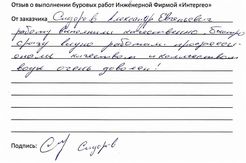 Отзыв о выполнении буровых работ Инженерной Фирмой «Интергео»
От заказчика Сидоров Александр Евгеньевич
работу выполнили качественно, быстро
сразу видно работают профессио-
налы качеством и количеством
воды очень доволен!
Подпись: Сидоров